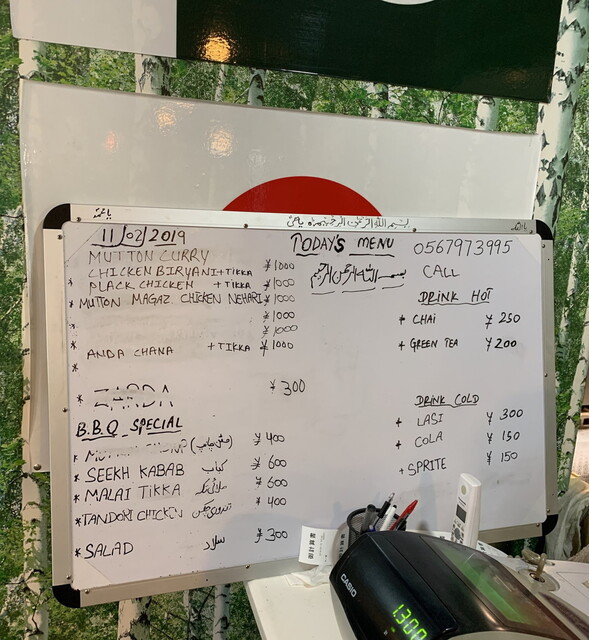 بسم الله الرحمن الرحیم
11/02/2019
TODAY'S MENU
0567973995
MUTTON CURRY
CALL
CHICKEN BIRYANI+TIKKA ¥1000
بسم الله الرحمن الرحیم
* PLACK CHICKEN +TIKKA ¥1000
* MUTTON MAGAZ. CHICKEN NEHARI ¥1000
* ¥1000
* ¥1000
ANDA CHANA +TIKKA ¥1000
*
* ZARDA ¥300
B.B.Q SPECIAL
* ¥400
* SEEKH KABAB کباب ¥600
* MALAI TIKKA ملائی تکہ ¥600
* TANDORI CHICKEN ¥400
* SALAD سلاد ¥300
DRINK HOT
+ CHAI ¥250
+ GREEN TEA ¥200
DRINK COLD
+ LASI ¥300
+ COLA ¥150
+ SPRITE ¥150
CASIO
1300